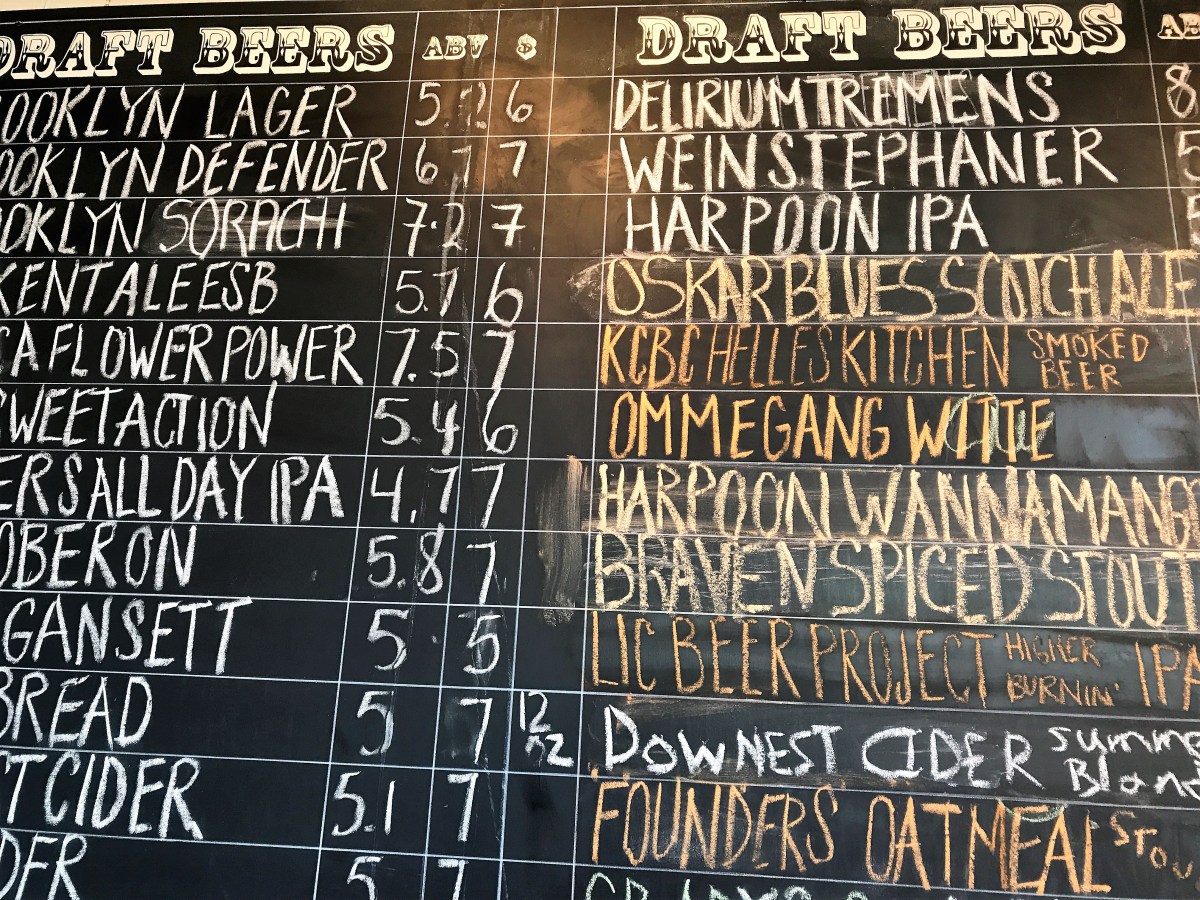 DRAFT BEERS ABV $
OOKLYN LAGER 5.2 6
OOKLYN DEFENDER 6.7 7
OKLYN SORACHI 7.2 7
KENT ALE ESB 5.7 6
CA FLOWER POWER 7.5 7
SWEET ACTION 5.4 6
ERS ALL DAY IPA 4.7 7
OBERON 5.8 7
GANSETT 5 5
BREAD 5 7 12 OZ
ST CIDER 5.1 7
DER 5 7
DRAFT BEERS AB
DELIRIUM TREMENS 8
WEINSTEPHANER 5
HARPOON IPA 5
OSKAR BLUES SCOTCH ALE
KCBC HELLES KITCHEN SMOKED BEER
OMMEGANG WITTE
HARPOON WANNAMANG
BRAVEN SPICED STOUT
LIC BEER PROJECT HIGHER BURNIN' IPA
DOWNEST CIDER Summe Blend
FOUNDERS OATMEAL STOU